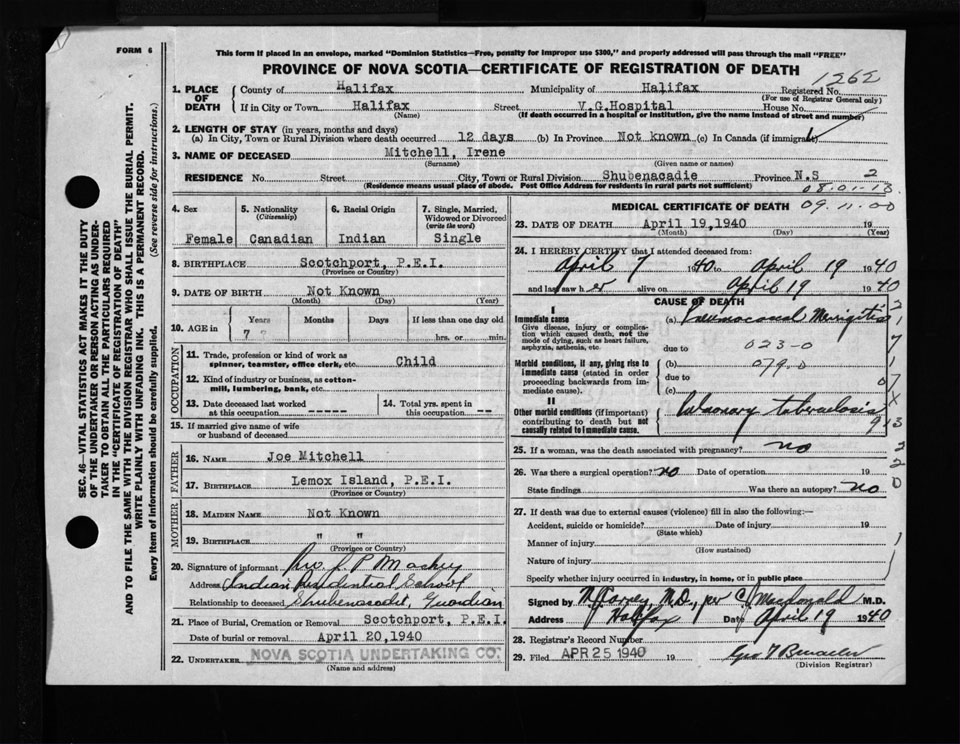 FORM 6
This form if placed in an envelope, marked "Dominion Statistics—Free, penalty for improper use $300," and properly addressed will pass through the mail "FREE"
PROVINCE OF NOVA SCOTIA—CERTIFICATE OF REGISTRATION OF DEATH
1262
1. PLACE OF DEATH
County of Halifax Municipality of Halifax Registered No.
(For use of Registrar General only)
If in City or Town Halifax Street V.G.Hospital House No.
(Name) (If death occurred in a hospital or institution, give the name instead of street and number)
2. LENGTH OF STAY (in years, months and days)
(a) In City, Town or Rural Division where death occurred 12 days (b) In Province Not known (c) In Canada (if immigrant)
3. NAME OF DECEASED Mitchell, Irene
(Surname) (Given name or names)
RESIDENCE No. Street City, Town or Rural Division Shubenacadie Province N.S 2
(Residence means usual place of abode. Post Office Address for residents in rural parts not sufficient)
08.01.13
4. Sex
Female
5. Nationality (Citizenship)
Canadian
6. Racial Origin
Indian
7. Single, Married, Widowed or Divorced (write the word)
Single
8. BIRTHPLACE Scotchport, P.E.I.
(Province or Country)
9. DATE OF BIRTH Not Known
(Month) (Day) (Year)
10. AGE in Years Months Days If less than one day old
7 hrs. or min.
OCCUPATION
11. Trade, profession or kind of work as spinner, teamster, office clerk, etc. Child
12. Kind of industry or business, as cotton-mill, lumbering, bank, etc.
13. Date deceased last worked at this occupation -----
14. Total yrs. spent in this occupation --
15. If married give name of wife or husband of deceased
FATHER
16. NAME Joe Mitchell
17. BIRTHPLACE Lemox Island, P.E.I.
(Province or Country)
MOTHER
18. MAIDEN NAME Not Known
19. BIRTHPLACE " "
(Province or Country)
20. Signature of informant Rev. J P Mackey
Address Indian Residential School
Relationship to deceased Shubenacadie, Guardian
21. Place of Burial, Cremation or Removal Scotchport, P.E.I.
Date of burial or removal April 20,1940
22. UNDERTAKER NOVA SCOTIA UNDERTAKING CO.
(Name and address)
MEDICAL CERTIFICATE OF DEATH 09.11.00
23. DATE OF DEATH April 19,1940 19
(Month) (Day) (Year)
24. I HEREBY CERTIFY that I attended deceased from:
April 7 1940 to April 19 1940
and last saw her alive on April 19 1940
CAUSE OF DEATH
I
Immediate cause (a) Pneumococcal Meningitis
Give disease, injury or complication which caused death, not the mode of dying, such as heart failure, asphyxia, asthenia, etc.
due to 023-0
Morbid conditions, if any, giving rise to immediate cause (stated in order proceeding backwards from immediate cause).
(b) 079.0
due to
(c)
II
Other morbid conditions (if important) contributing to death but not causally related to immediate cause.
Pulmonary tuberculosis
25. If a woman, was the death associated with pregnancy? no
26. Was there a surgical operation? no Date of operation 19
State findings Was there an autopsy? no
27. If death was due to external causes (violence) fill in also the following:—
Accident, suicide or homicide? Date of injury 19
(State which)
Manner of injury
(How sustained)
Nature of injury
Specify whether injury occurred in industry, in home, or in public place
Signed by M.D., per C Macdonald M.D.
Address Halifax Date April 19 1940
28. Registrar's Record Number
29. Filed APR 25 1940 19
(Division Registrar)
SEC. 46—VITAL STATISTICS ACT MAKES IT THE DUTY
OF THE UNDERTAKER OR PERSON ACTING AS UNDER-
TAKER TO OBTAIN ALL THE PARTICULARS REQUIRED
IN THE "CERTIFICATE OF REGISTRATION OF DEATH"
AND TO FILE THE SAME WITH THE DIVISION REGISTRAR WHO SHALL ISSUE THE BURIAL PERMIT.
WRITE PLAINLY WITH UNFADING INK. THIS IS A PERMANENT RECORD.
Every item of information should be carefully supplied. (See reverse side for instructions.)